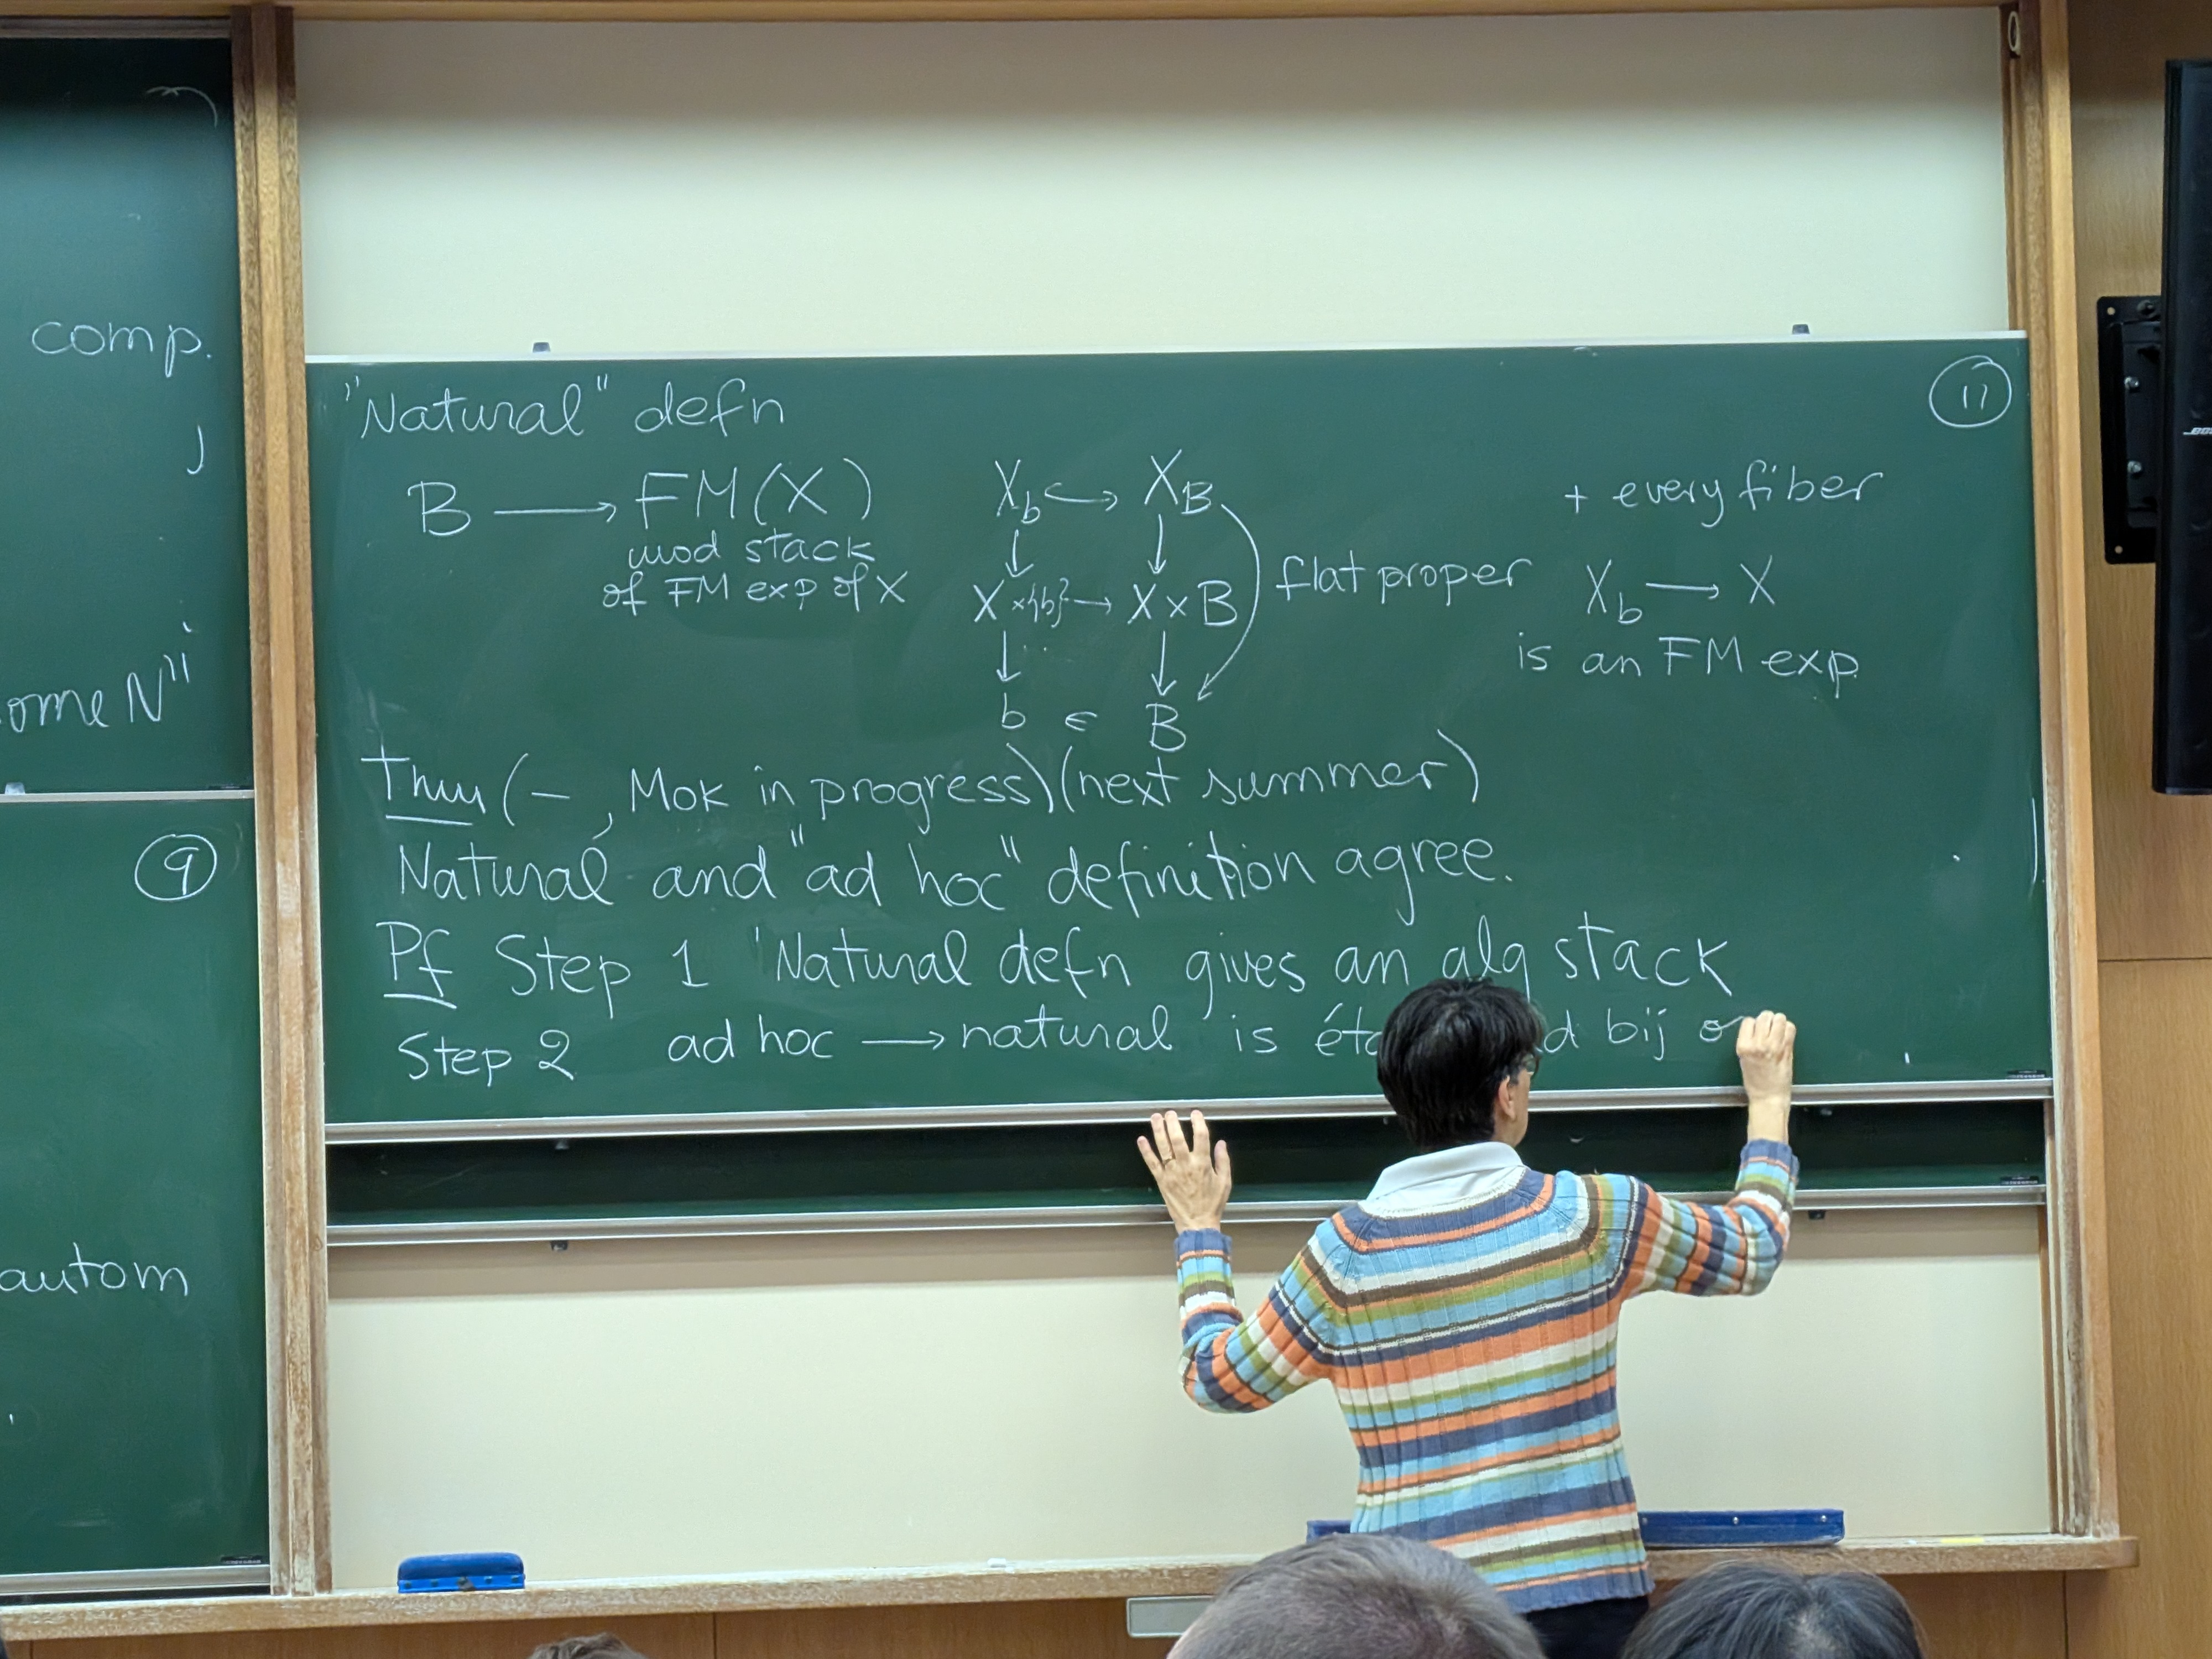 comp.
ome N"
9
autom
"Natural" defn
11
B ⟶ FM(X)
mod stack
of FM exp of X
X_b ↪ X_B
↓ ↓
X × {b} → X × B
↓ ↓
b ∈ B
flat proper
+ every fiber
X_b ⟶ X
is an FM exp.
Thm (– , Mok in progress) (next summer)
Natural and "ad hoc" definition agree.
Pf Step 1 Natural defn gives an alg stack
Step 2 ad hoc ⟶ natural is bij